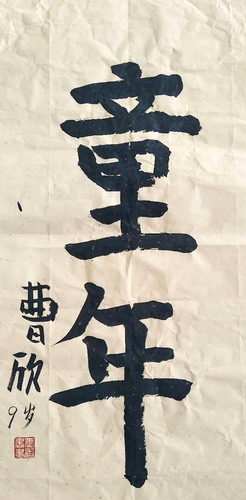 童年
曹欣
9岁